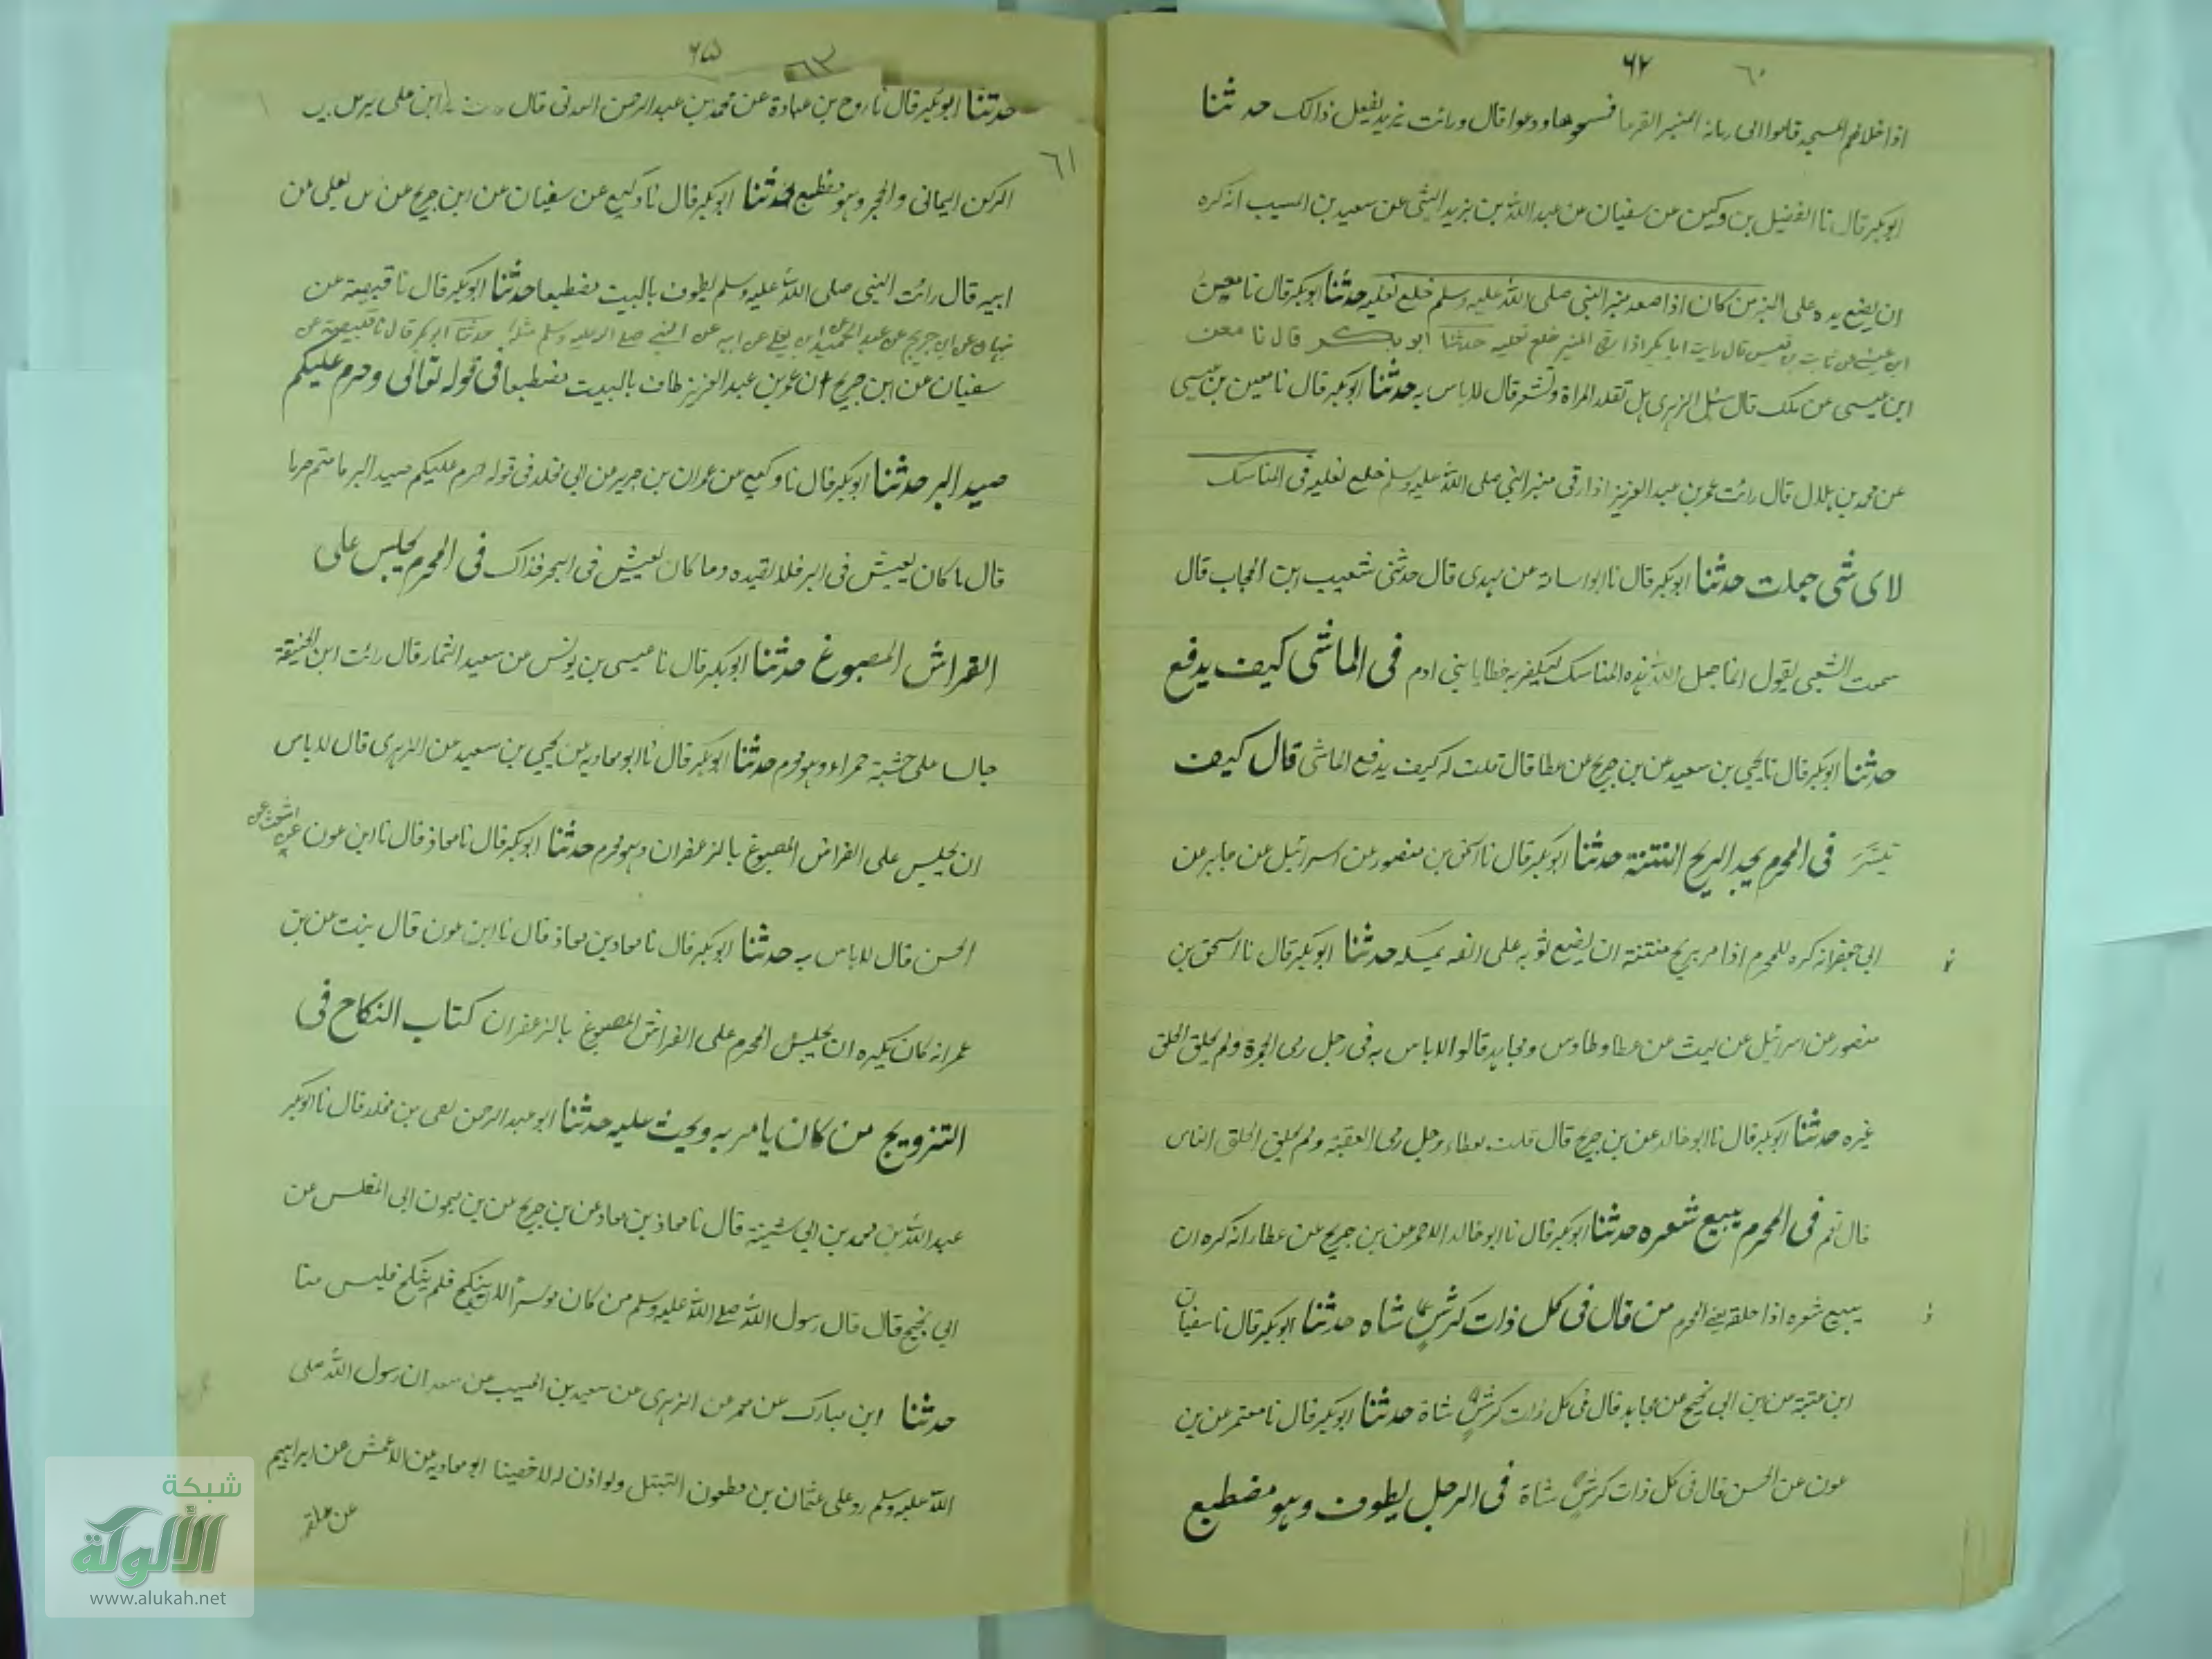 ٦٠ ٦٤
اذا خلا لهم المسجد قاموا الى رمانة المنبر القرعا فمسحوها ودعوا قال ورائت يزيد يفعل ذالك حدثنا
ابوبكر قال نا الفضيل بن وكين عن سفيان عن عبد الله بن يزيد الليثى عن سعيد بن المسيب انه كره
ان يضع يده على المنبر من كان اذا صعد منبر النبى صلى الله عليه وسلم خلع نعليه حدثنا ابوبكر قال نا معين
قيس قال رايت ابا بكر اذا رقى المنبر خلع نعليه حدثنا ابو بكر قال نا معن
ابن عيسى عن ملك قال سئل الزهرى هل تقلد المراة وتشعر قال لاباس به حدثنا ابوبكر قال نا معين بن عيسى
عن محمد بن هلال قال رائت عمر بن عبد العزيز اذا رقى منبر النبى صلى الله عليه وسلم خلع نعليه فى المناسك
لاى شى جعلت حدثنا ابوبكر قال نا ابو اسامة عن مهدى قال حدثنى شعيب ابن الحجاب قال
سمعت الشعبى يقول انما جعل الله هذه المناسك ليكفر به خطايا بنى ادم فى الماشى كيف يدفع
حدثنا ابوبكر قال نا يحيى بن سعيد عن بن جريح عن عطا قال قلت له كيف يدفع الماشى قال كيف
تيسر فى المحرم يجد الريح المنتنة حدثنا ابوبكر قال نا اسحق بن منصور عن اسرائيل عن جابر عن
ابى جعفر انه كره للمحرم اذا مر بريح منتنة ان يضع ثوبه على انفه يمسكه حدثنا ابوبكر قال نا اسحق بن
منصور عن اسرائيل عن ليث عن عطا وطاوس ومجاهد قالوا لاباس به فى رجل رمى الجمرة ولم يحلق الحلق
غيره حدثنا ابوبكر قال نا ابو خالد عن بن جريح قال قلت لعطاء رجل رمى العقبة ولم يحلق الحلق الناس
قال نعم فى المحرم يبيع شعره حدثنا ابوبكر قال نا ابو خالد الاحمر عن بن جريح عن عطا انه كره ان
يبيع شعره اذا حلقه يعنى المحرم من قال فى كل ذات كرش شاه حدثنا ابوبكر قال نا سفيان
ابن عتبة عن بن ابى نجيح عن مجاهد قال فى كل ذات كرش شاة حدثنا ابوبكر قال نا معتمر عن بن
عون عن الحسن قال فى كل ذات كرش شاة فى الرجل يطوف وهو مضطبع
٦٣ ٦٥
حدثنا ابوبكر قال نا روح بن عبادة عن محمد بن عبد الرحمن العدنى قال ابن على
٦١
الركن اليمانى والحجر وهو مضطبع حدثنا ابوبكر قال نا وكيع عن سفيان عن ابن جريح عن يعلى عن
ابيه قال رائت النبى صلى الله عليه وسلم يطوف بالبيت مضطبعا حدثنا ابوبكر قال نا قبيصة عن
سفيان عن ابن جريج عن عبد الحميد عن ابن يعلى عن ابيه عن النبى صلى الله عليه وسلم مثله حدثنا ابو بكر قال نا قبيصة عن
سفيان عن ابن جريح ان عمر بن عبد العزيز طاف بالبيت مضطبعا فى قوله تعالى وحرم عليكم
صيد البر حدثنا ابوبكر قال نا وكيع عن عمران بن جرير عن ابى مخلد فى قوله حرم عليكم صيد البر ما دمتم حرما
قال ما كان يعيش فى البر فلا يقيده وما كان يعيش فى البحر فذاك فى المحرم يجلس على
القراش المصبوغ حدثنا ابوبكر قال نا عيسى بن يونس عن سعيد التمار قال رائت ابن الحنيفة
جالسا على حشبة حمراء وهو محرم حدثنا ابوبكر قال نا ابو معاويه عن يحيى بن سعيد عن الزهرى قال لاباس
ان يجلس على الفراش المصبوغ بالزعفران وهو محرم حدثنا ابوبكر قال نا معاذ قال نا ابن عون عن اشعث عن
الحسن قال لاباس به حدثنا ابوبكر قال نا معاد بن معاذ قال نا ابن عون قال بنت عن بن
عمر انه كان يكره ان يجلس المحرم على الفراش المصبوغ بالزعفران كتاب النكاح فى
التزويج من كان يامر به ويحث عليه حدثنا ابو عبد الرحمن بقى بن مخلد قال نا ابوبكر
عبد الله بن محمد بن ابى شيبة قال نا معاذ بن معاد عن بن جريح عن بن ميمون ابى المغلس عن
ابى نجيح قال قال رسول الله صلى الله عليه وسلم من كان موسرا لان ينكح فلم ينكح فليس منا
حدثنا ابن مبارك عن معمر عن الزهرى عن سعيد بن المسيب عن سعد ان رسول الله صلى
الله عليه وسلم رد على عثمان بن مظعون التبتل ولو اذن له لاخصينا ابو معاويه عن الاعمش عن ابراهيم
عن علقمة
شبكة
الألوكة
www.alukah.net